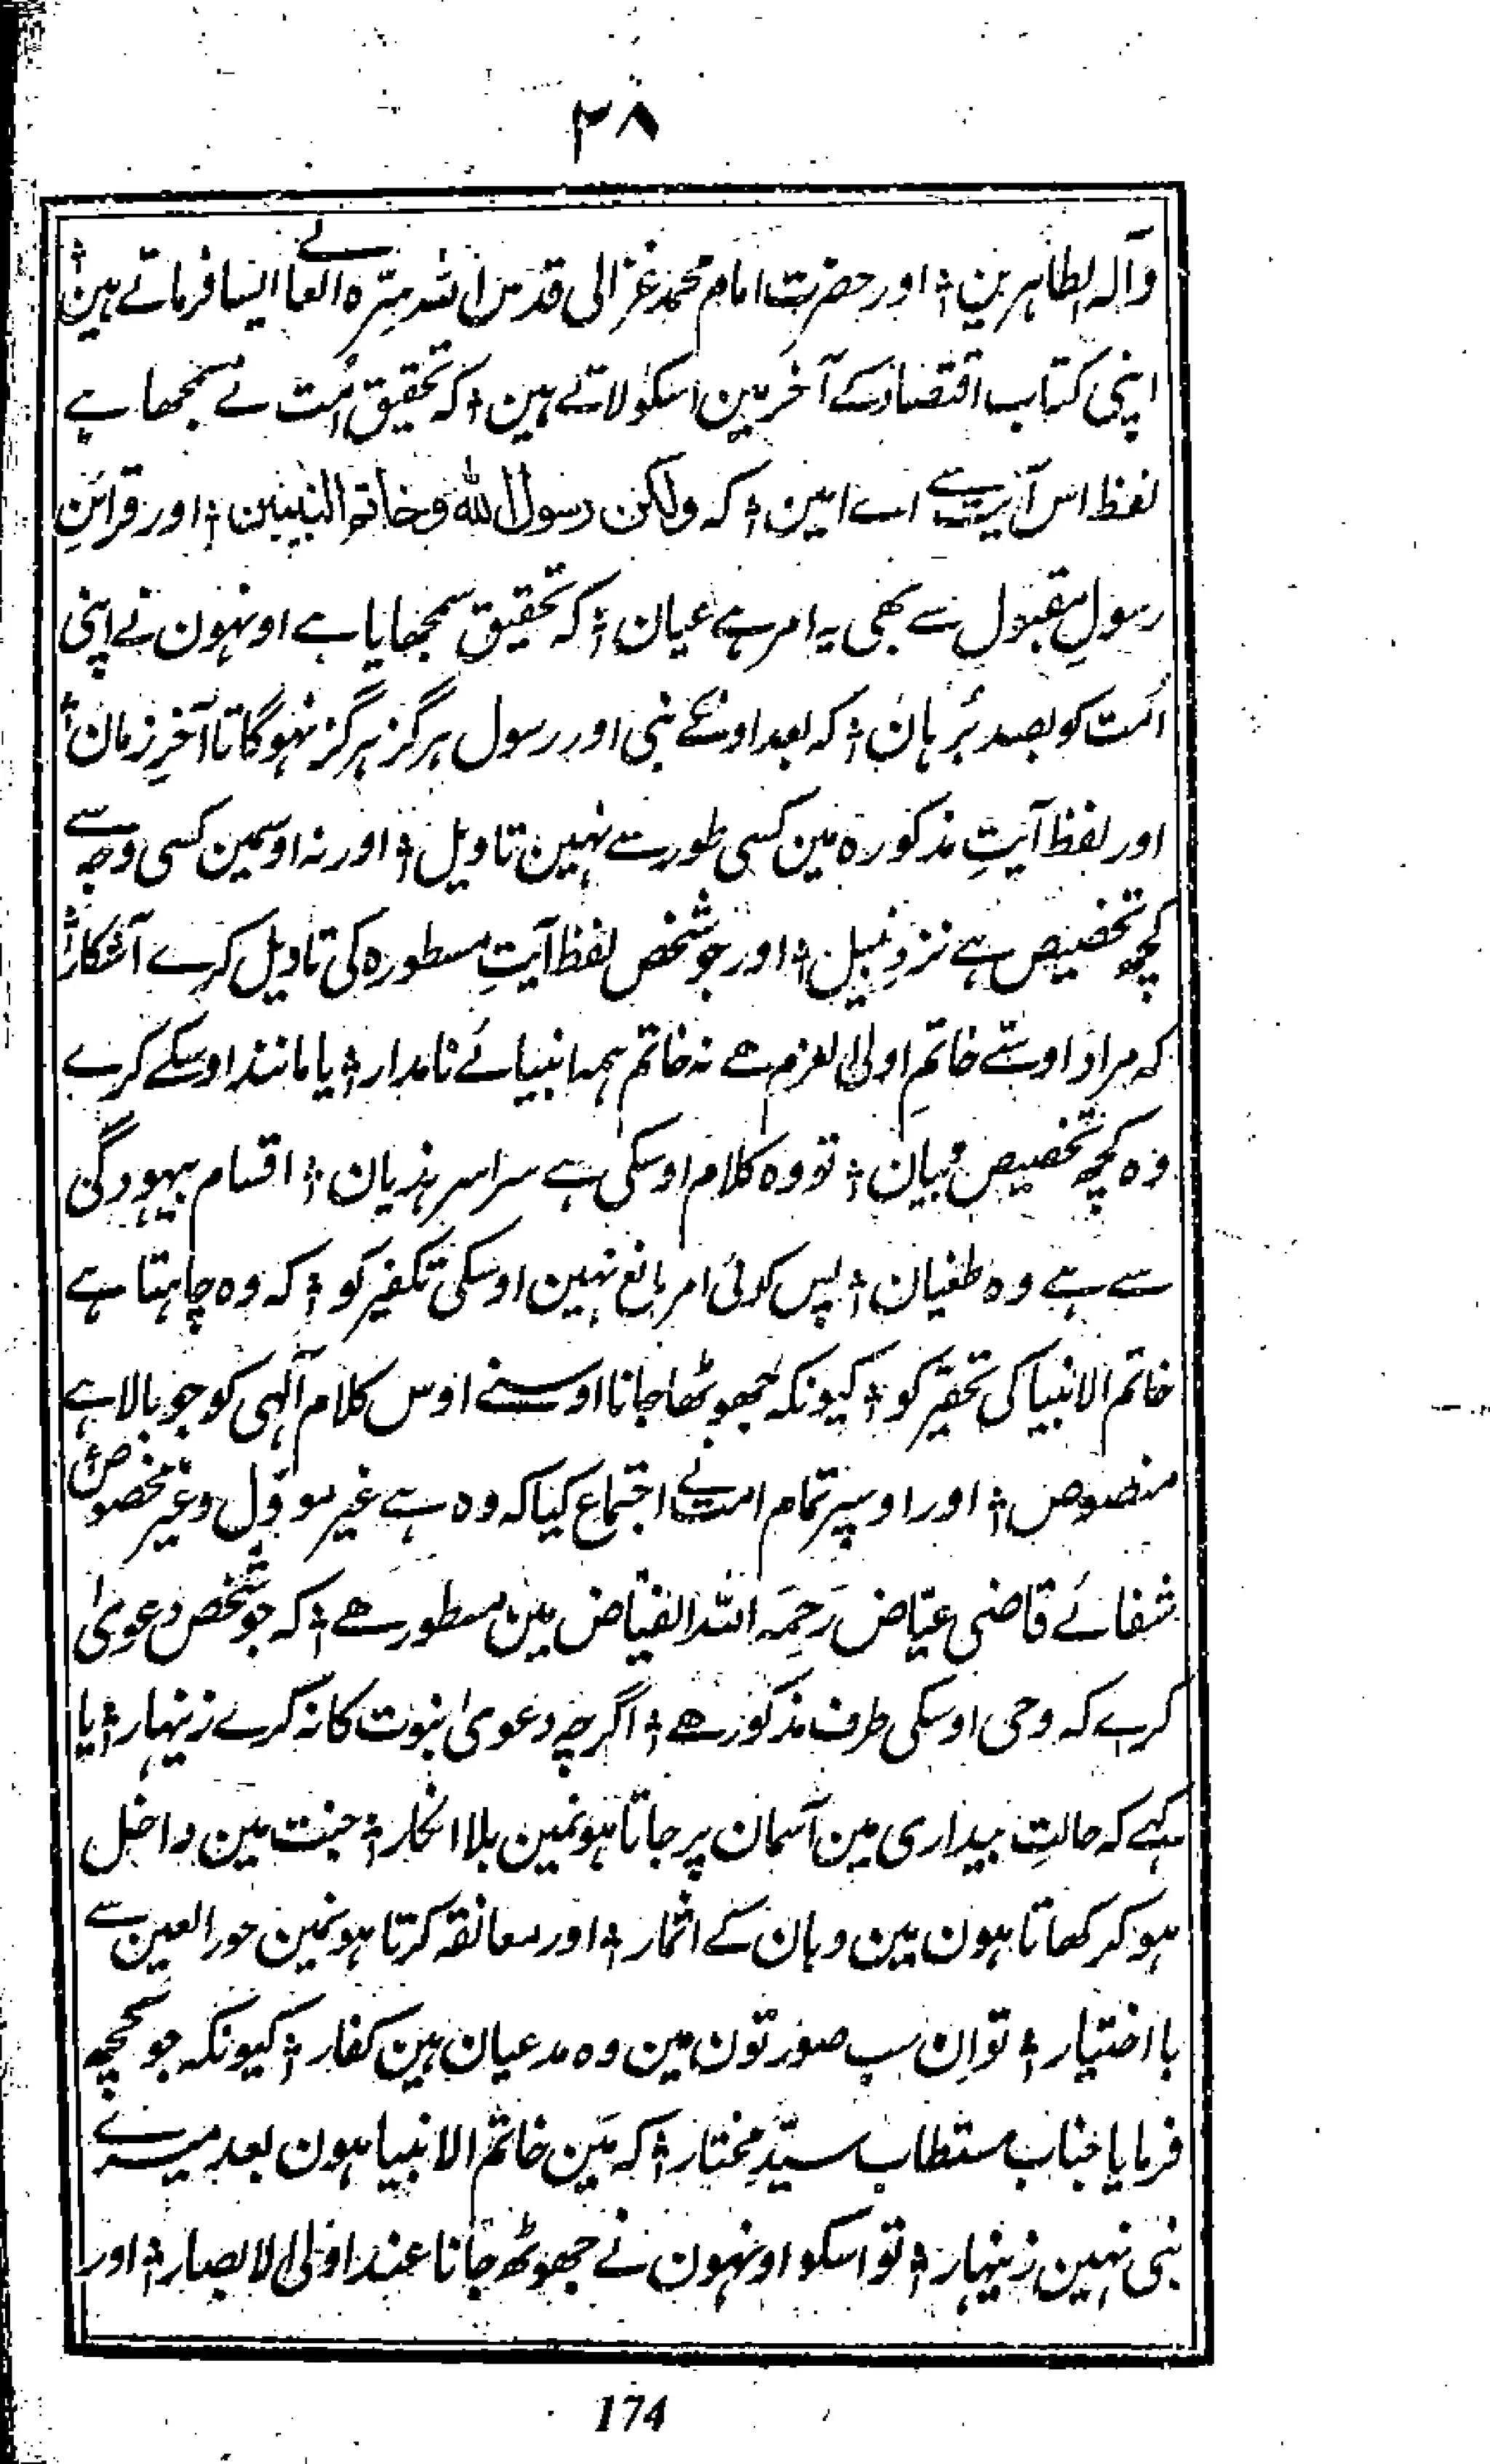 ۳۸
وآلہ الطاہرین ؛ اور حضرت امام محمد غزالی قدس اللہ سرّہ العالے ایسا فرماتے ہین ؛
اپنی کتاب اقتصاد کے آخر مین اسکو لاتے ہین ؛ کہ تحقیق امّت نے سمجھا ہے
لفظ اس آیت سے اے امین ؛ کہ ولکن رسول اللہ وخاتم النبیین ؛ اور قرائنِ
رسولِ مقبول سے بھی یہ امر ہے عیان ؛ کہ تحقیق سمجھایا ہے اونہون نے اپنی
امّت کو بصد بُرہان ؛ کہ بعد اونکے نبی اور رسول ہرگز ہرگز نہوگا تا آخرِ زمان ؛
اور لفظ آیتِ مذکورہ مین کسی طور سے نہین تاویل ؛ اور نہ اوسمین کسی وجہ سے
کچھ تخصیص ہے نزدِ نبیل ؛ اور جو شخص لفظ آیتِ مسطورہ کی تاویل کرے آشکار ؛
کہ مراد اوسّے خاتمِ اولی العزم ہے نہ خاتم ہمہ انبیائے نامدار ؛ یا مانند اوسکے کرے
وہ کچھ تخصیص و بیان ؛ تو وہ کلام اوسکی ہے سراسر ہذیان ؛ اقسام بیہودگی
سے ہے وہ طغیان ؛ پس کوئی امر مانع نہین اوسکی تکفیر کو ؛ کہ وہ چاہتا ہے
خاتم الانبیا کی تحقیر کو ؛ کیونکہ جھوٹھا جانا اوسنے اوس کلام آلہی کو جو بالا ہے
منصوص ؛ اور اوسپر تمام امت نے اجتماع کیا کہ وہ ہے غیر موؤل وغیر مخصوص ؛
شفائے قاضی عیّاض رَحِمَہ اللہ الفیّاض مین مسطور ہے ؛ کہ جو شخص دعویٰ
کرے کہ وحی اوسکی طرف مذکور ہے ؛ اگرچہ دعویٰ نبوت کا نہ کرے زینہار ؛ یا
کہے کہ حالتِ بیداری مین آسمان پر جاتا ہونمین بلا انکار ؛ جنت مین داخل
ہوکر کھاتا ہون مین وہان کے اثمار ؛ اور معانقہ کرتا ہونمین حور العین سے
با اختیار ؛ تو اِن سب صورتون مین وہ مدعیان ہین کفار ؛ کیونکہ جو کچھ
فرمایا جناب مستطاب سیّدِ مختار ؛ کہ مَین خاتم الانبیا ہون بعد میرے
نبی نہین زینہار ؛ تو اسکو اونہون نے جھوٹھ جانا عند اولی الابصار ؛ اور
174